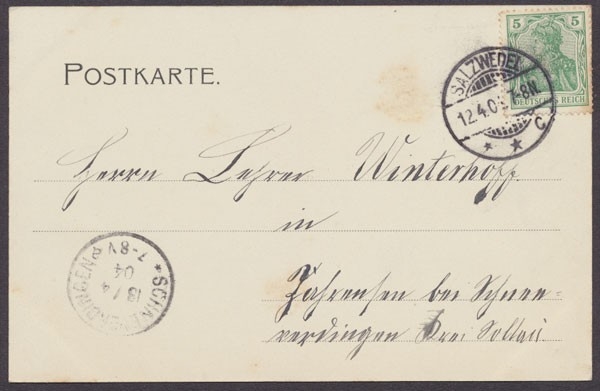 POSTKARTE.
5 5
DEUTSCHES REICH
SALZWEDEL
12.4.04 7-8N.
* * C
Herrn Lehrer Winterhoff.
in
Zahrensen bei Schnee-
verdingen Krei Soltau.
* SCHNEVERDINGEN *
13/4
04
7-8V